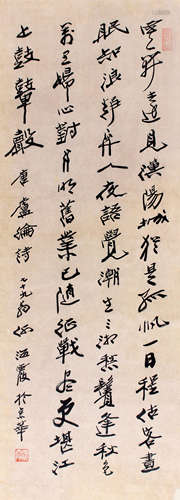 雲開遠見漢陽城猶是孤帆一日程估客晝
眠知浪靜舟人夜語覺潮生三湘愁鬢逢秋色
萬里歸心對月明舊業已隨征戰盡更堪江
上鼓鼙聲 唐盧綸詩 於京華